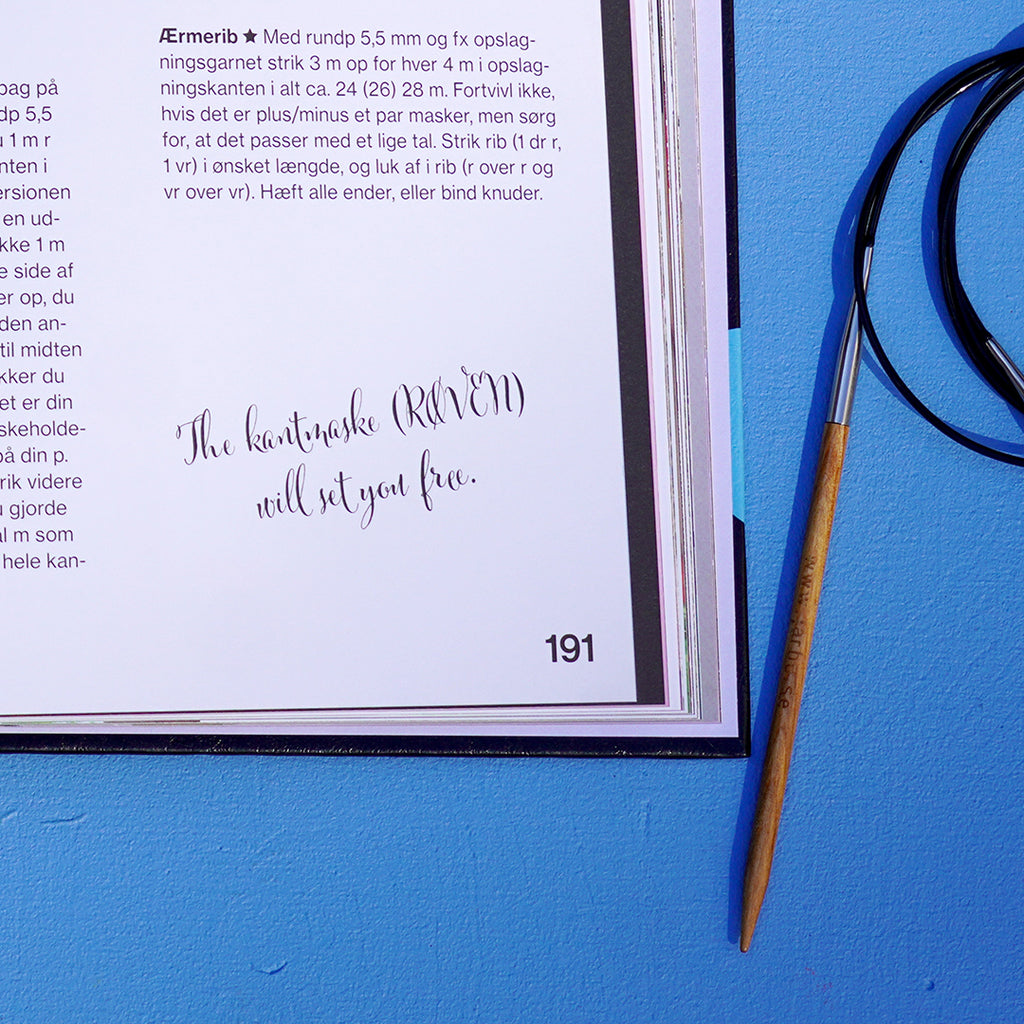 bag på
dp 5,5
1 m r
nten i
ersionen
en ud-
kke 1 m
e side af
er op, du
den an-
til midten
kker du
et er din
skeholde-
på din p.
rik videre
gjorde
al m som
hele kan-
Ærmerib ★ Med rundp 5,5 mm og fx opslag-
ningsgarnet strik 3 m op for hver 4 m i opslag-
ningskanten i alt ca. 24 (26) 28 m. Fortvivl ikke,
hvis det er plus/minus et par masker, men sørg
for, at det passer med et lige tal. Strik rib (1 dr r,
1 vr) i ønsket længde, og luk af i rib (r over r og
vr over vr). Hæft alle ender, eller bind knuder.
The kantmaske (RØVEN)
will set you free.
191